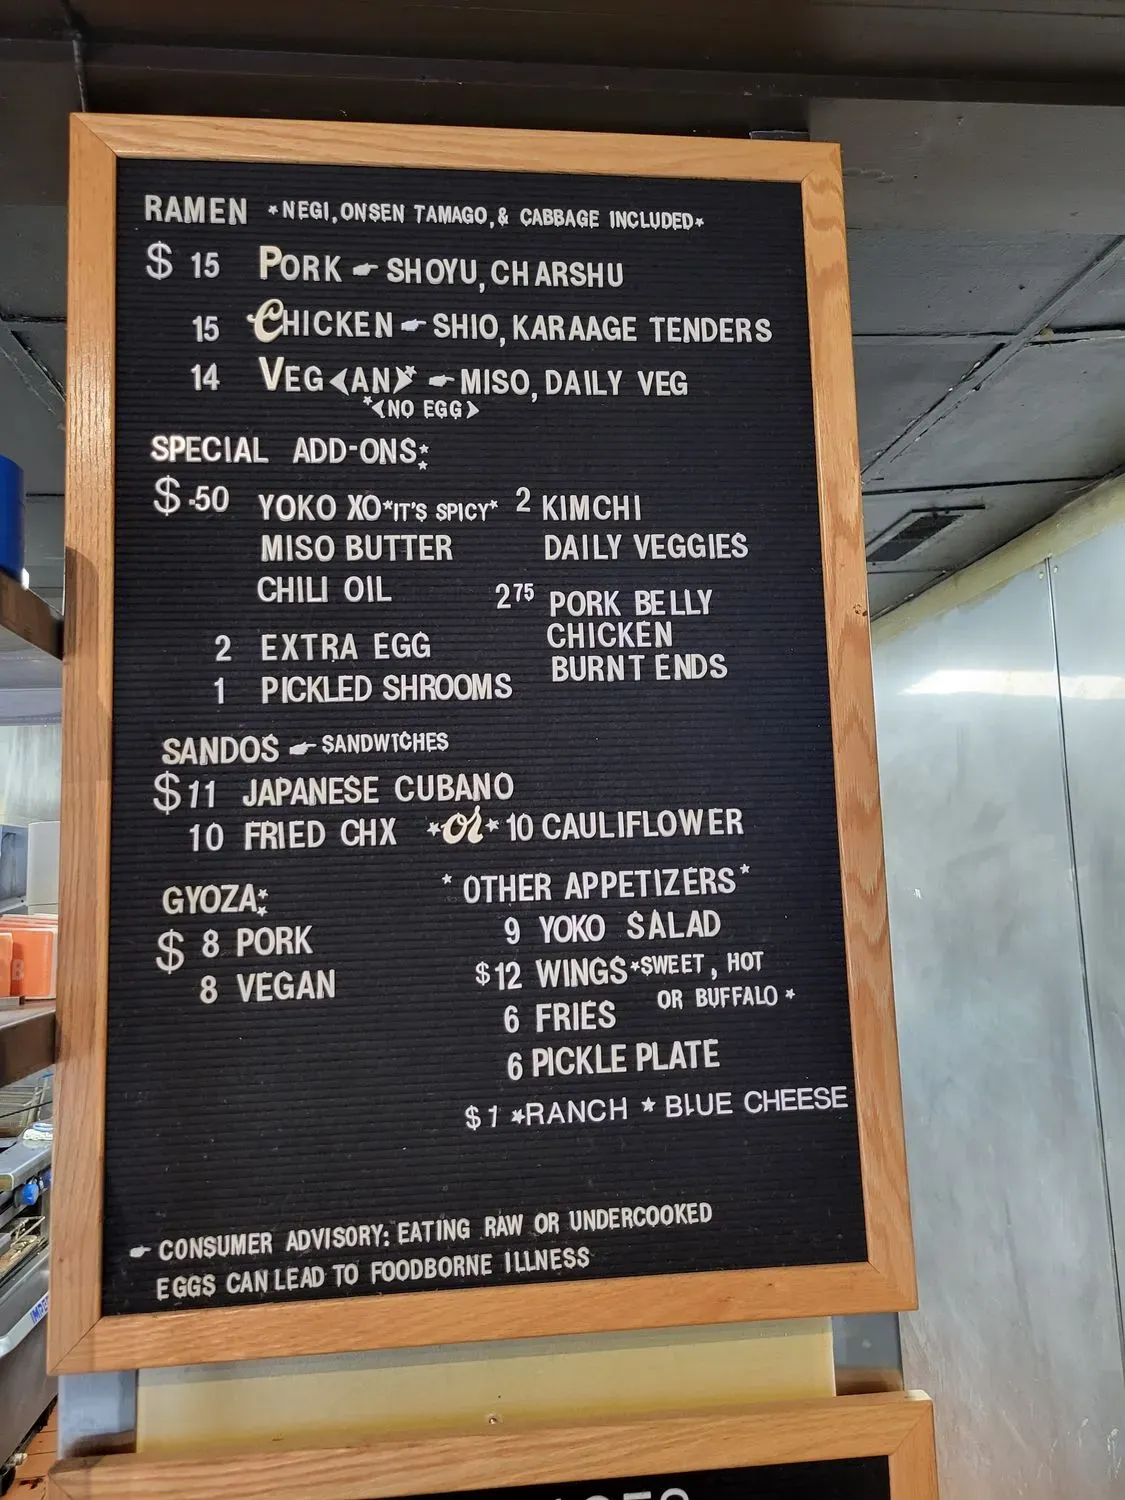 RAMEN *NEGI, ONSEN TAMAGO, & CABBAGE INCLUDED*
$ 15 PORK ☛ SHOYU, CHARSHU
15 CHICKEN ☛ SHIO, KARAAGE TENDERS
14 VEG<AN>* ☛ MISO, DAILY VEG
*<NO EGG>
SPECIAL ADD-ONS:
$ .50 YOKO XO *IT'S SPICY*
MISO BUTTER
CHILI OIL
2 EXTRA EGG
1 PICKLED SHROOMS
2 KIMCHI
DAILY VEGGIES
2.75 PORK BELLY
CHICKEN
BURNT ENDS
SANDOS ☛ SANDWICHES
$ 11 JAPANESE CUBANO
10 FRIED CHX *or* 10 CAULIFLOWER
GYOZA:
$ 8 PORK
8 VEGAN
* OTHER APPETIZERS *
9 YOKO SALAD
$12 WINGS *SWEET, HOT
OR BUFFALO *
6 FRIES
6 PICKLE PLATE
$1 *RANCH * BLUE CHEESE
☛ CONSUMER ADVISORY: EATING RAW OR UNDERCOOKED
EGGS CAN LEAD TO FOODBORNE ILLNESS